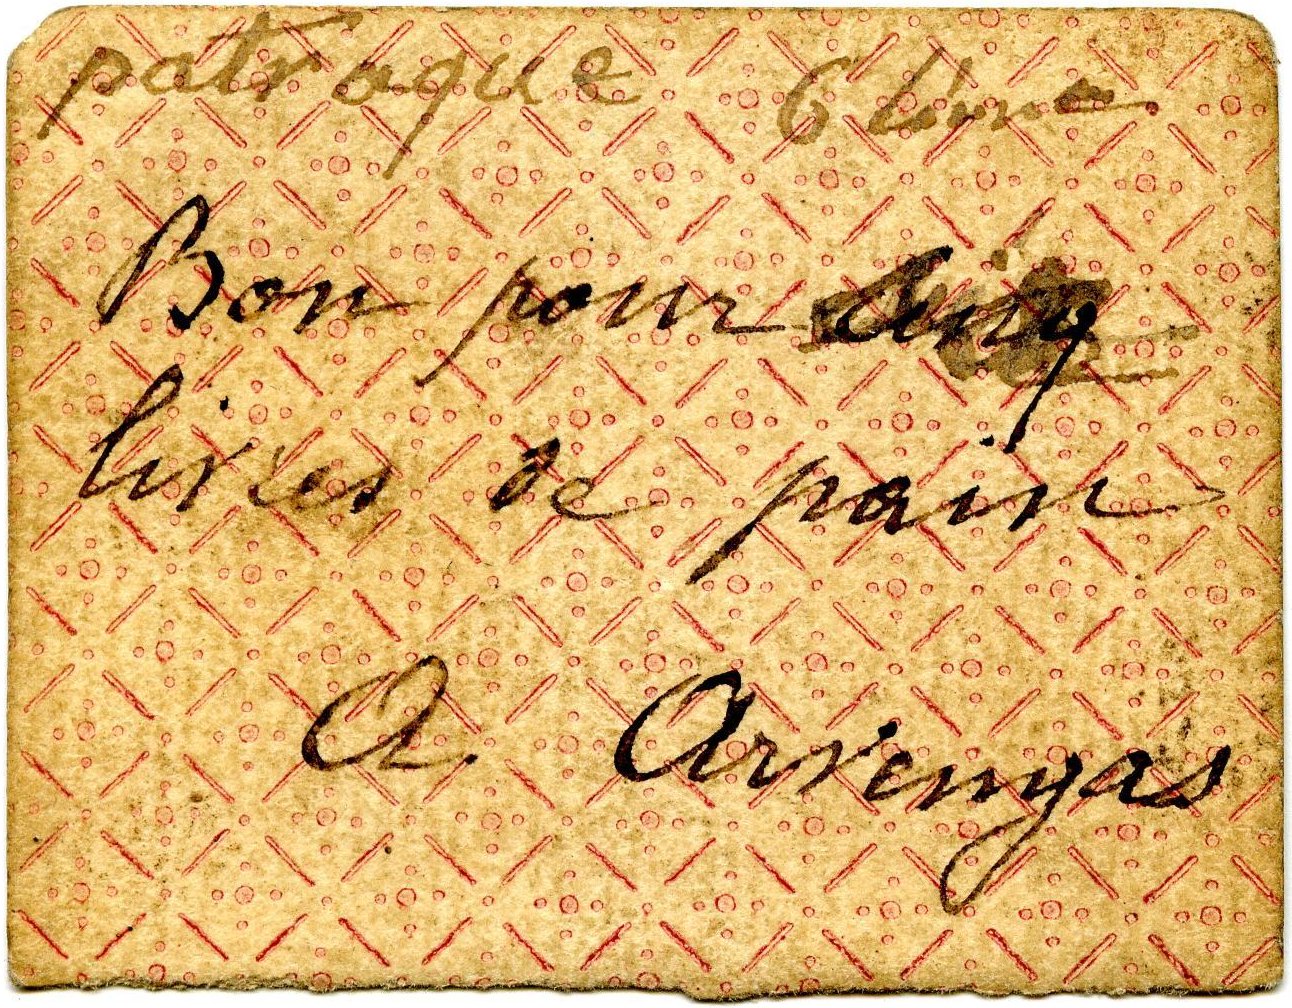 patraque 6 ième
Bon pour Cinq
livres de pain
A. Arvengas